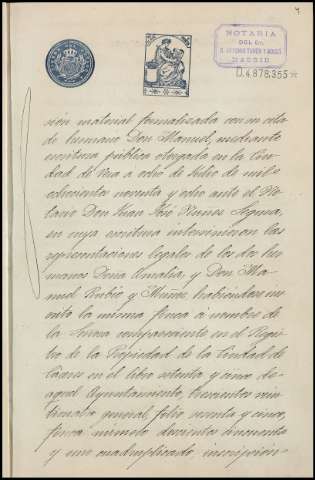 4
NOTARIA
DEL Dr.
D. ANTONIO TURÓN Y BOSCÁ
MADRID
O.4.878,355
sión material formalizada con su cita
da hermano Don Manuel, mediante
escritura pública otorgada en la Ciu
dad de a ocho de Julio de mil
ochocientos noventa y ocho ante el No
tario Don Juan José Nuñes Segura,
en cuya escritura intervinieron las
representaciones legales de los dos her
manos Doña Amalia, y Don Ma
nuel Rubio y Muñoz, habiéndose ins
crito la misma finca a nombre de
la Señora compareciente en el Regis
tro de la Propiedad de la Ciudad de
en el libro setenta y cinco de
aquel Ayuntamiento, trescientos vein
tinueve general, folio ochenta y cinco,
finca número doscientos cincuenta
y uno cuadruplicado, inscripcion